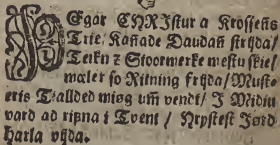 ÞEgar CHRIstur a Krossens
Trie/ Kañade Daudañ stryda/
Teikn z Stoormerke mestu skie/
mæler so Ritning fryda/ Must-
eris Tiallded miøg um̃ vendt/ J Midiu
vard ad rifna i Tvent/ Hrystest Jørd
harla vyda.